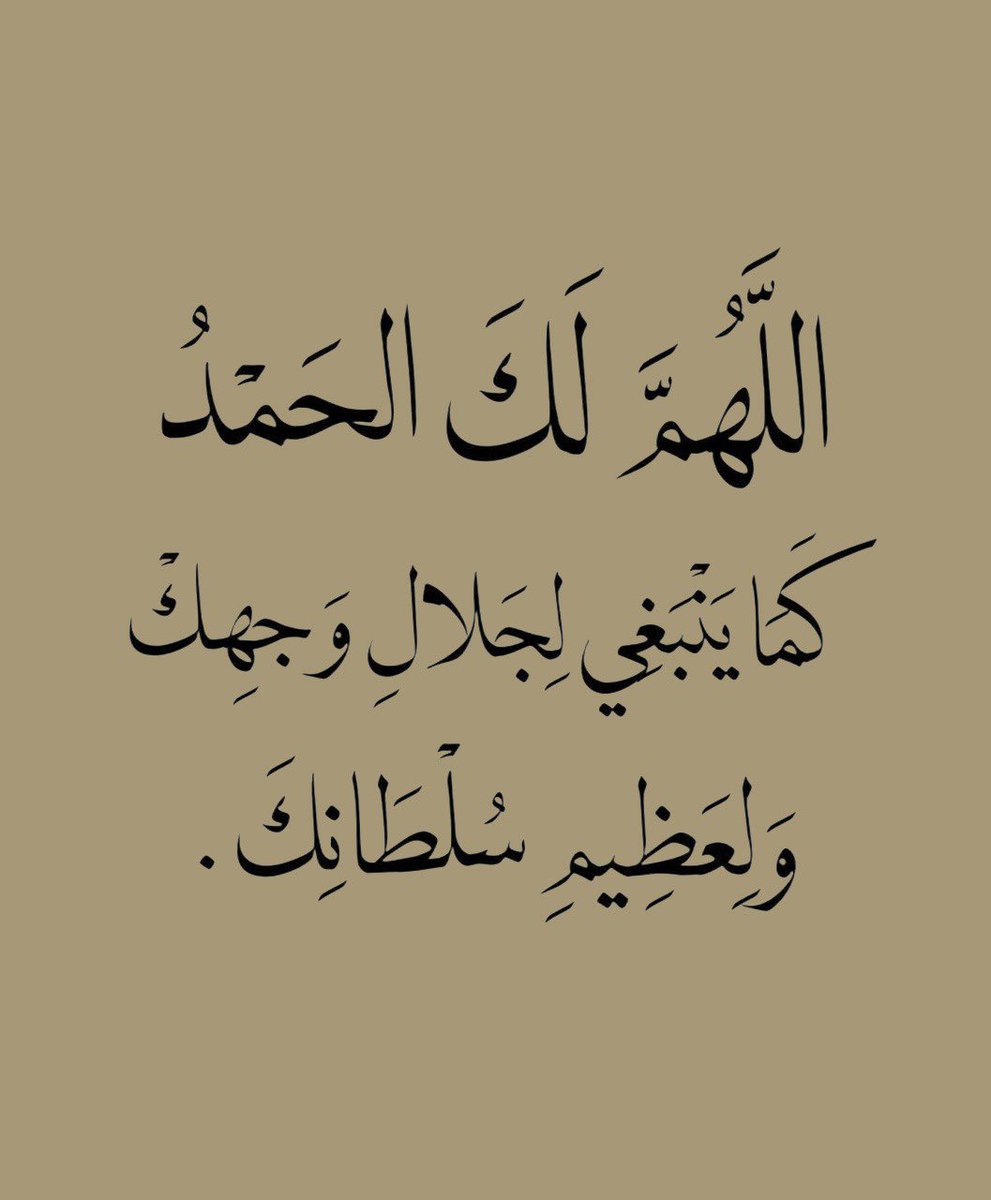 اللَّهُمَّ لَكَ الحَمْدُ
كَمَا يَنْبَغِي لِجَلالِ وَجهِكْ
وَلِعَظِيمِ سُلْطَانِكَ .